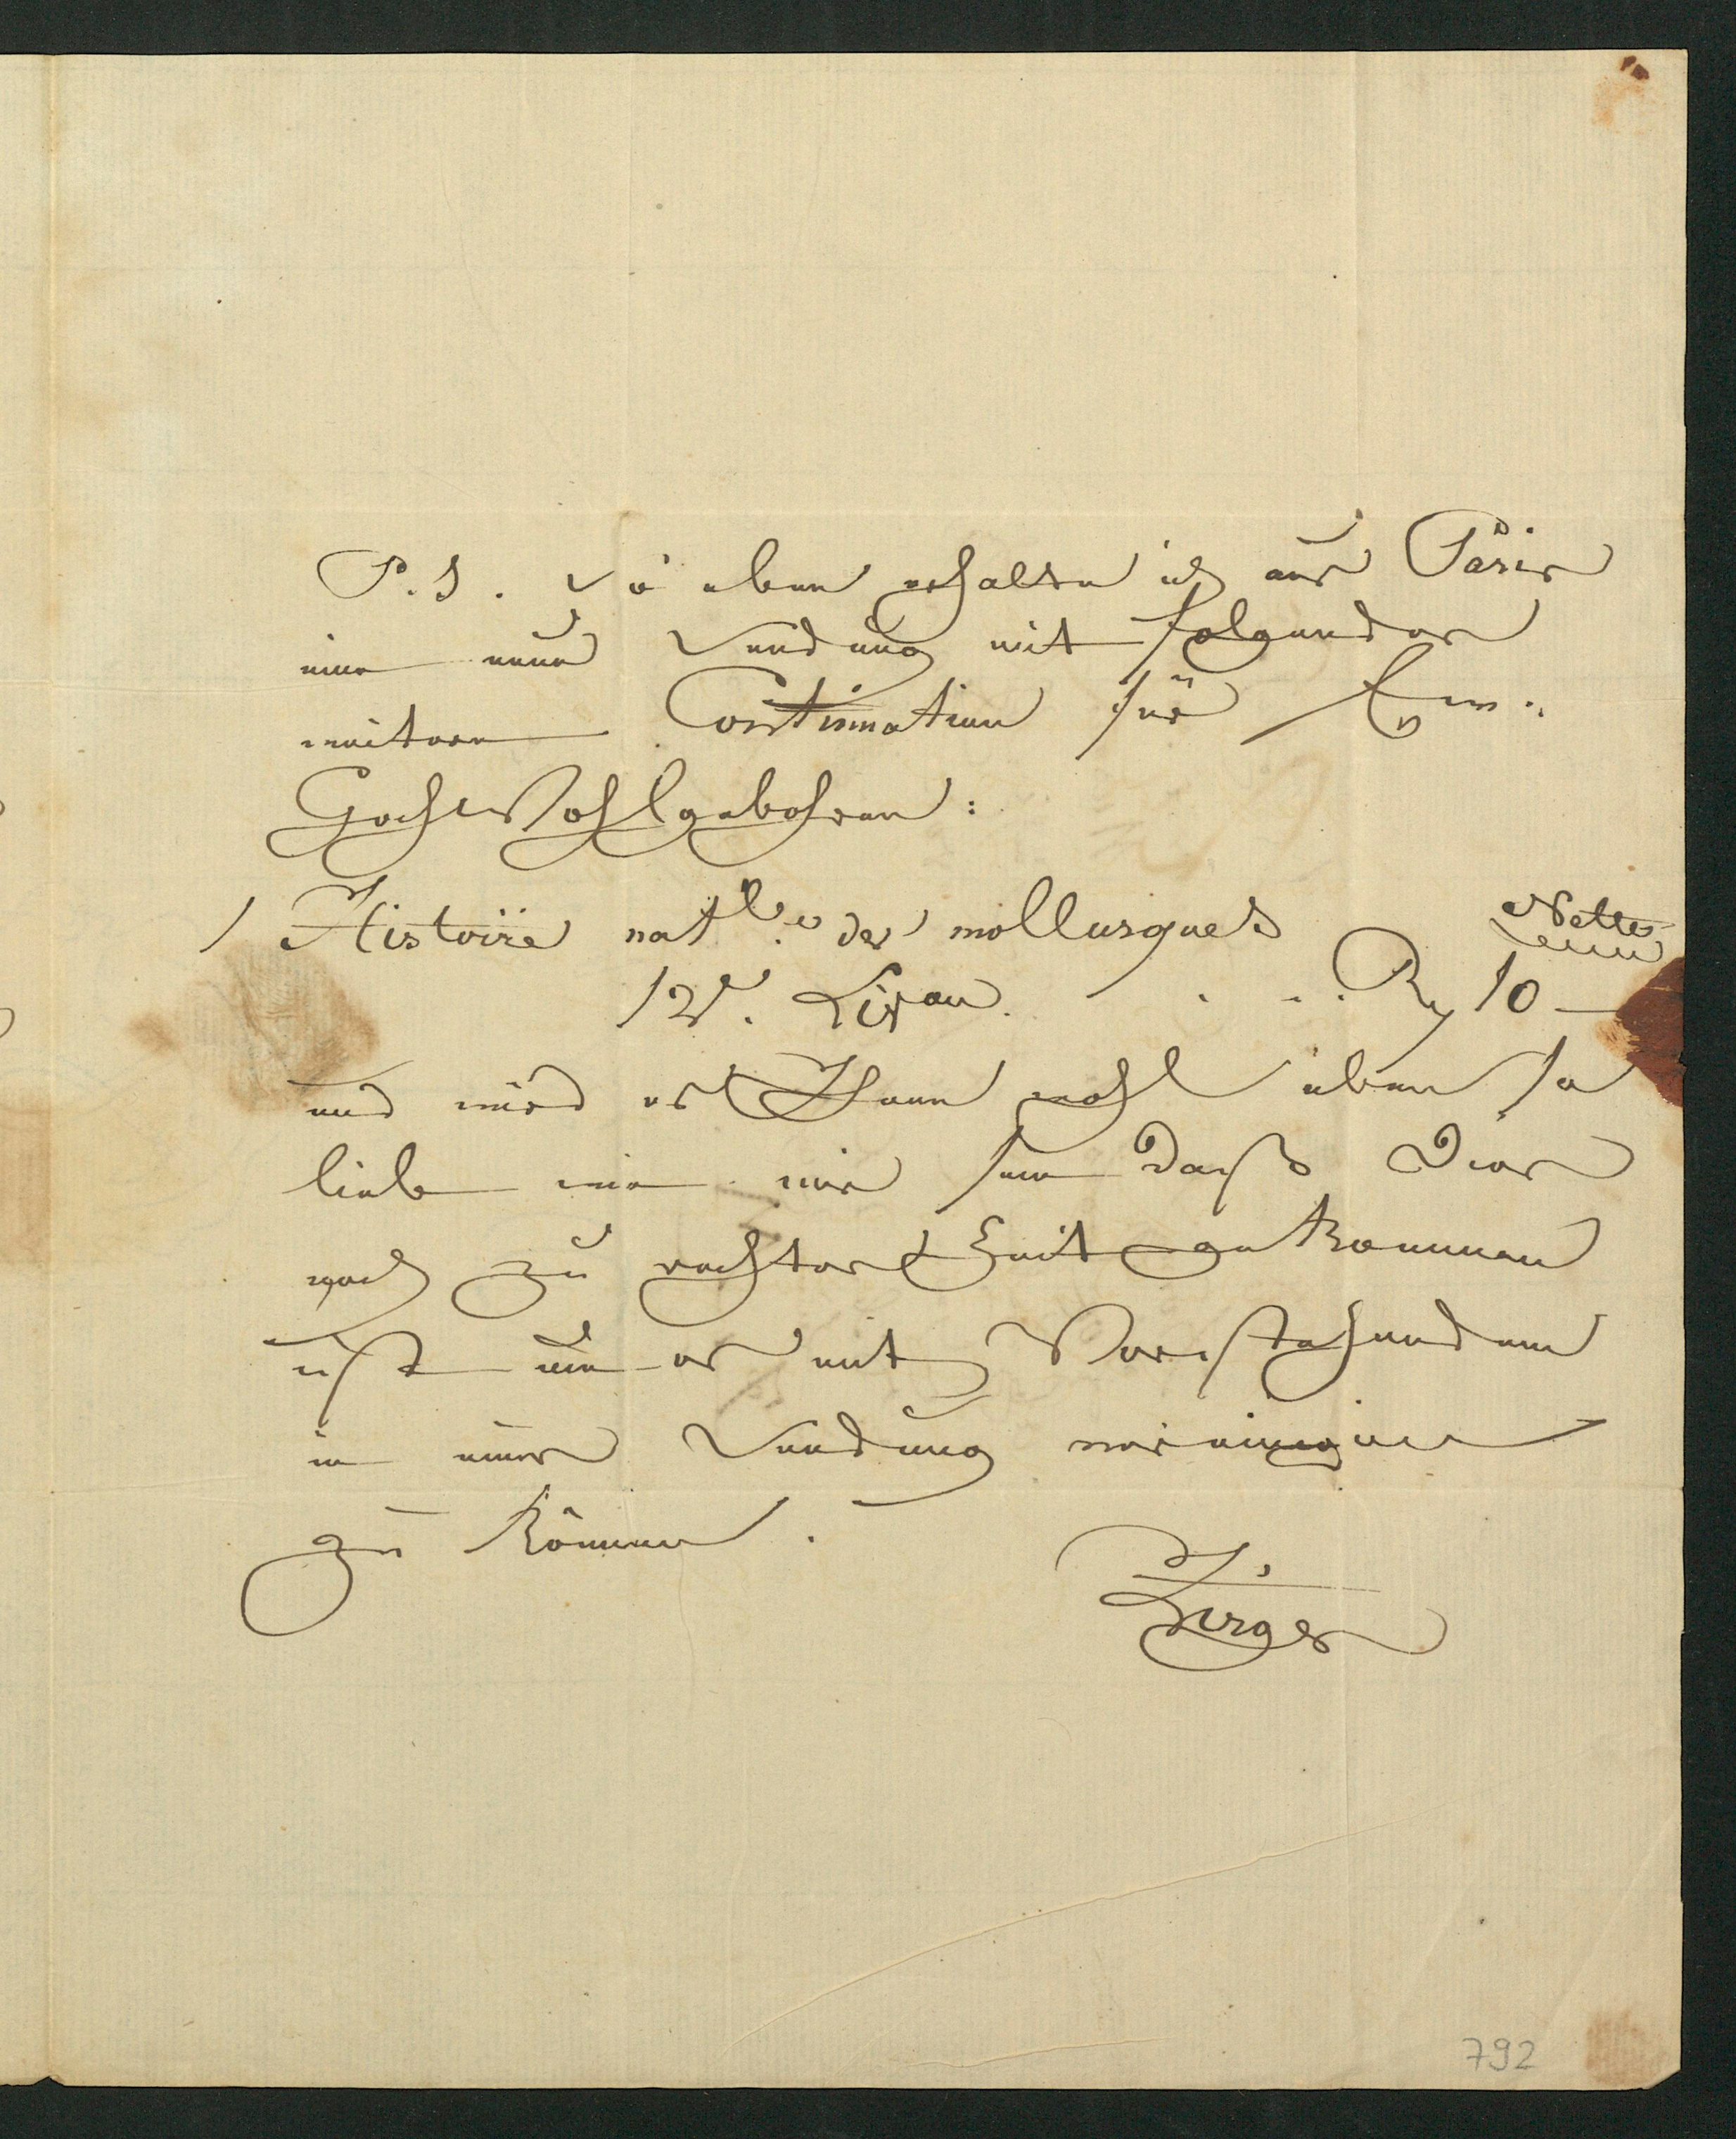 P. S. So eben erhalten ich aus Paris
eine neue Sendung mit folgender
weitern Continuation für Ew.
HochWohlgebohren:
1 Histoire natlle des mollusques Netto
12e. Livon. . . . R 10 —
und wird es Ihnen wohl eben so
lieb wie mir sein daß dies
noch zu rechter Zeit gekommen
ist um es mit Vorstehendem
in einer Sendung vereinigen
zu können.
Zirges
792